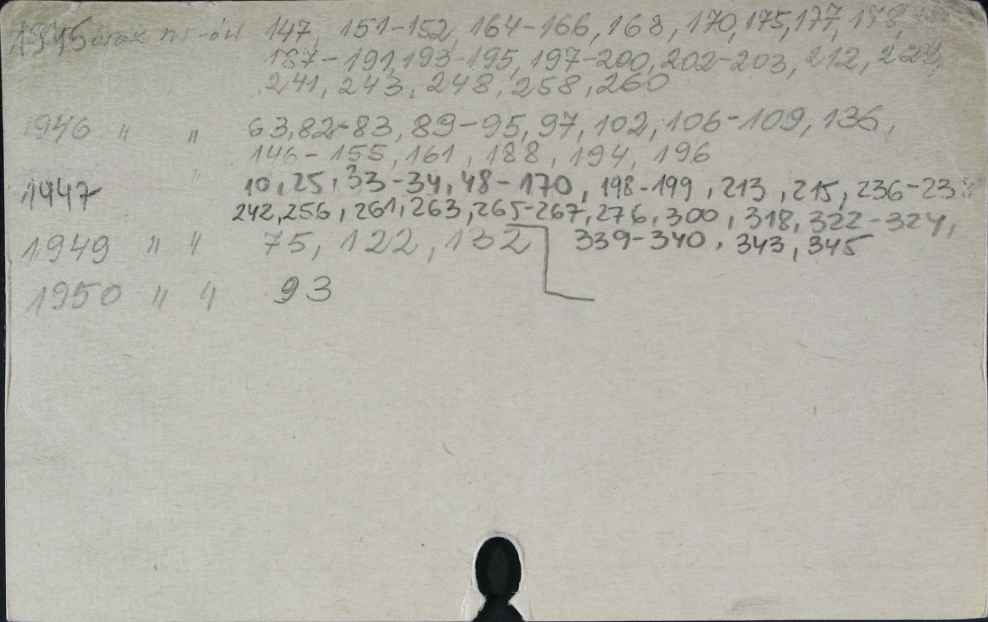 1945 brak nr-ów 147, 151-152, 164-166, 168, 170, 175, 177, 178,
187-191, 193-195, 197-200, 202-203, 212,
241, 243, 248, 258, 260
1946 " " 63, 82-83, 89-95, 97, 102, 106-109, 136,
146-155, 161, 188, 194, 196
1947 " 10, 25, 33-34, 48-170, 198-199, 213, 215, 236-23
242, 256, 261, 263, 265-267, 276, 300, 318, 322-324,
339-340, 343, 345
1949 " " 75, 122, 132
1950 " " 93